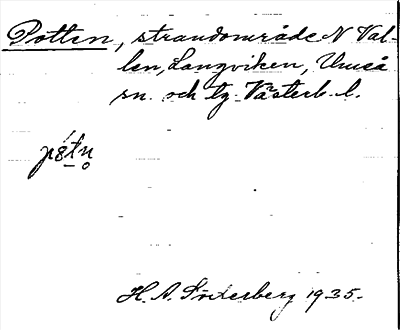 Potten, strandområde N Val-
len, Långviken, Umeå
sn. och tg. Västerb. l.
H. A. Söderberg 1935.